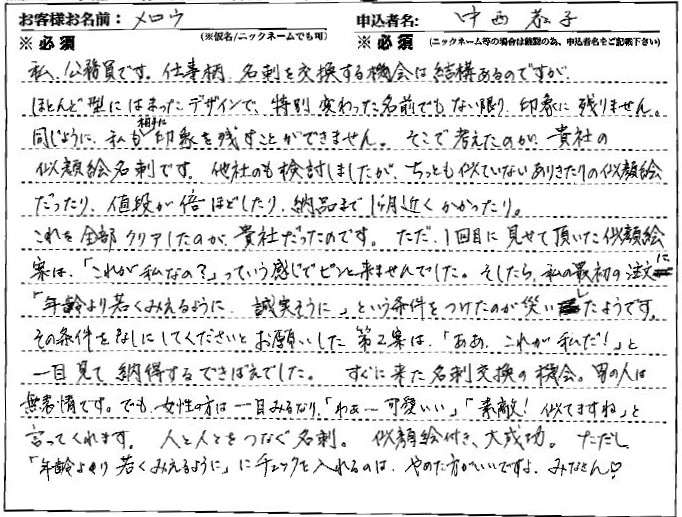 お客様お名前：メロウ 申込者名：中西恭子
※必須 （※仮名/ニックネームでも可） ※必須 （ニックネーム等の場合は確認の為、申込者名をご記載下さい）
私、公務員です。仕事柄、名刺を交換する機会は結構あるのですが、
ほとんど型にはまったデザインで、特別変わった名前でもない限り、印象に残りません。
同じように、私も相手に印象を残すことができません。そこで考えたのが、貴社の
似顔絵名刺です。他社のも検討しましたが、ちっとも似ていないありきたりの似顔絵
だったり、値段が倍ほどしたり、納品まで1ヶ月近くかかったり。
これを全部クリアしたのが、貴社だったのです。ただ、1回目に見せて頂いた似顔絵
案は、「これが私なの？」っていう感じでピンと来ませんでした。そしたら、私の最初の注文に
「年齢より若くみえるように、誠実そうに」という条件をつけたのが災いしたようです。
その条件をなしにしてくださいとお願いした第2案は、「ああ、これが私だ！」と
一目見て納得するできばえでした。 すぐに来た名刺交換の機会。男の人は
無表情です。でも、女性の方は一目みるなり、「わぁー可愛いい」「素敵！似てますね」と
言ってくれます。 人と人とをつなぐ名刺。 似顔絵付き、大成功。 ただし、
「年齢より若くみえるように」にチェックを入れるのは、やめた方がいいですよ、みなさん♡